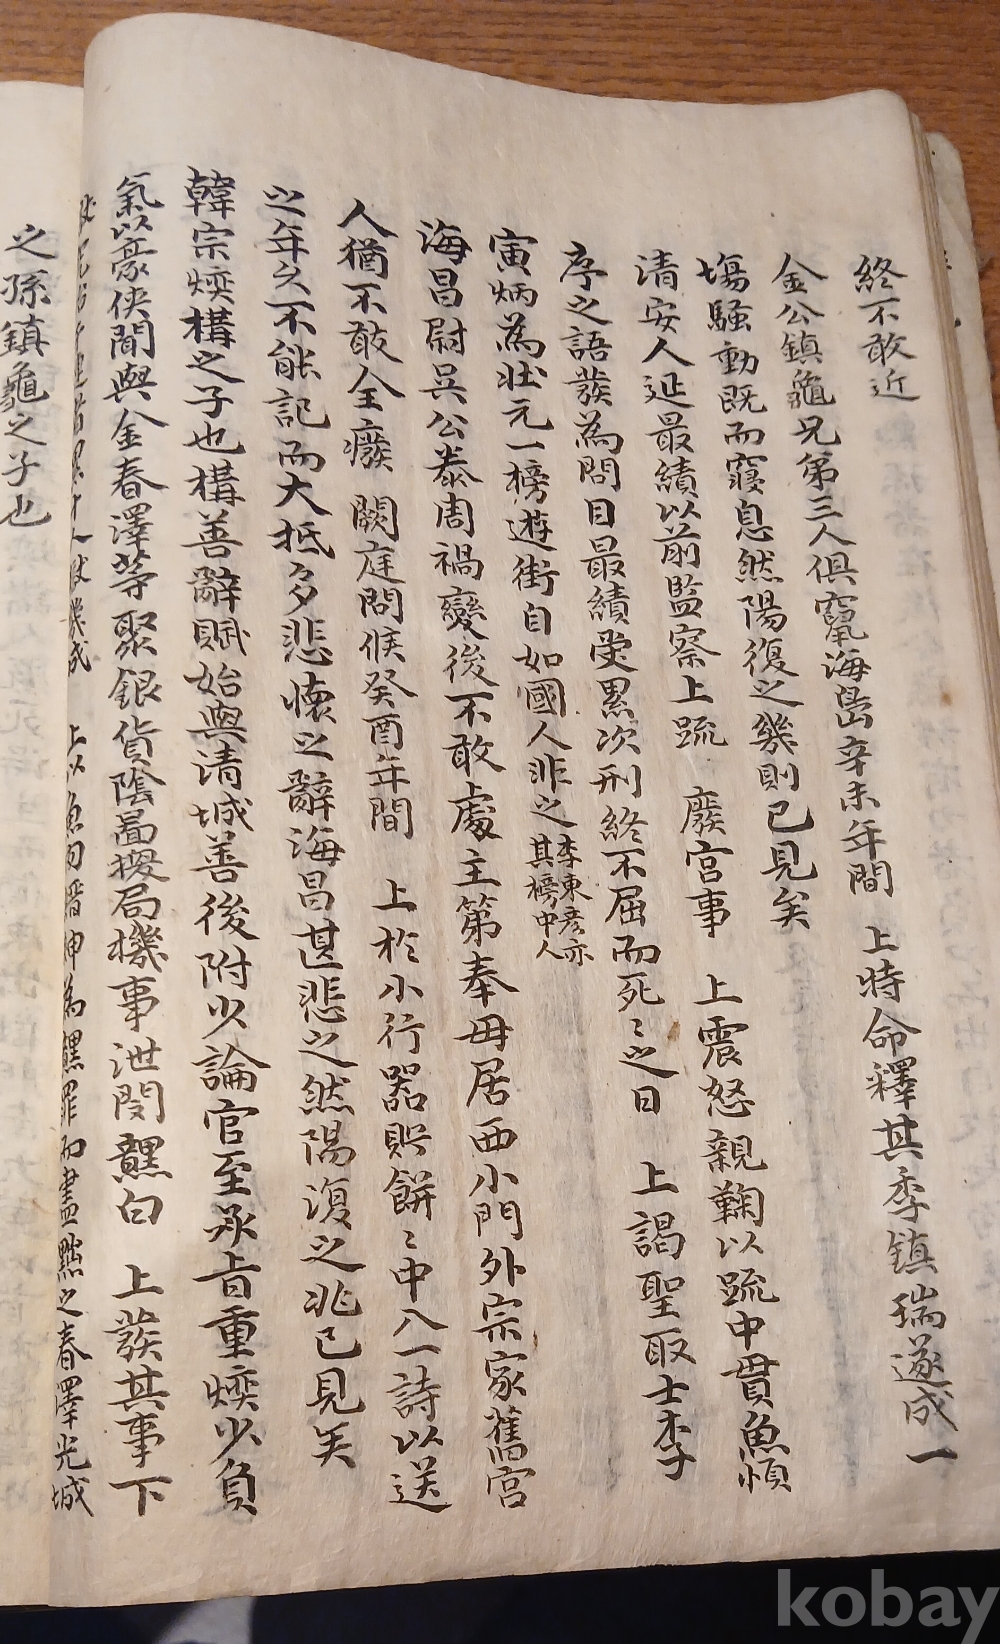 終不敢近
金公鎮龜兄弟三人俱竄海島辛未年間 上特命釋其季鎮瑞遂成一
塲騷動旣而寢息然陽復之幾則已見矣
清安人延最績以前監察上疏 廢宮事 上震怒親鞠以疏中貫魚順
序之語發為問目最績受累次刑終不屈而死〻之日 上謁聖取士李
寅炳為壯元一榜遊街自如國人非之李東彦亦其榜中人
海昌尉吳公泰周禍變後不敢處主第奉母居西小門外宗家舊宮
人猶不敢全癈 闕庭問候癸酉年間 上於小行器貯餠〻中入一詩以送
之年久不能記而大抵多悲懷之辭海昌甚悲之然陽復之兆已見矣
韓宗㷡構之子也構善辭賦始與清城善後附少論官至承旨重㷡少負
氣以豪俠聞與金春澤等聚銀貨陰圖換局機事泄閔黯白 上發其事下
上以 為黯罪而盡黜之春澤光城
之孫鎮龜之子也
kobay